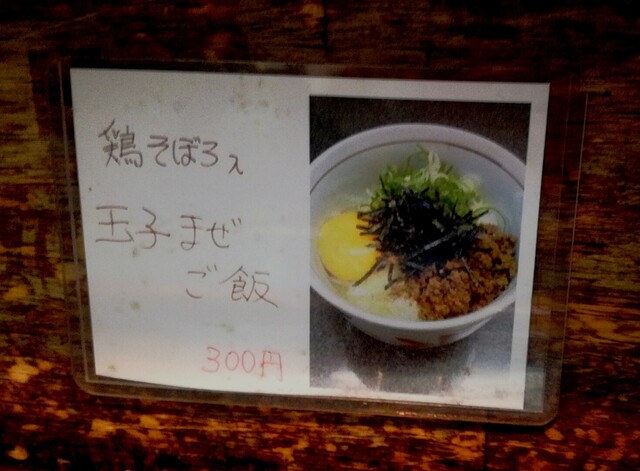 鶏そぼろ入
玉子まぜ
ご飯
300円